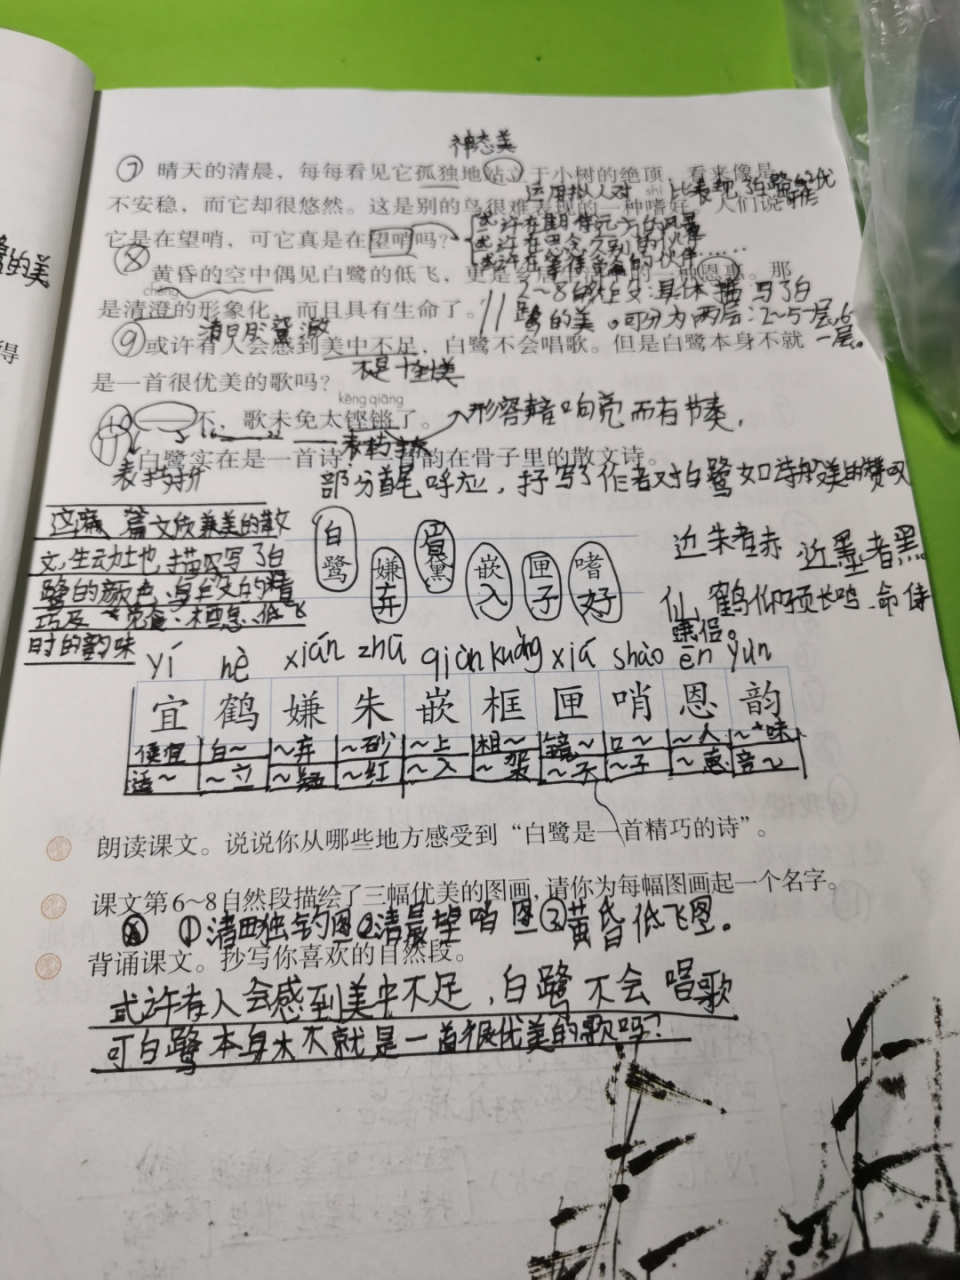 神态美
⑦ 晴天的清晨，每每看见它孤独地站立于小树的绝顶，看来像是
运用拟人 对 比 表现了白鹭的优
shì
不安稳，而它却很悠然。这是别的鸟很难表现的一种嗜好。人们说
或许在期待远方的风景
它是在望哨，可它真是在望哨吗？
或许在思念久别的伙伴
或许在等待 的伙伴……
⑧ 黄昏的空中偶见白鹭的低飞，更是 的一种恩惠。那
鹭的美
chéng
2~8自然段：具体描写了白
是清澄的形象化，而且具有生命了。
鹭的美。可分为两层：2~5一层，6
一层。
得
⑨ 或许有人会感到美中不足，白鹭不会唱歌。但是白鹭本身不就
是一首很优美的歌吗？
不是十全十美
kēng qiāng
⑩ ——不，歌未免太铿锵了。
形容声音响亮而有节奏，
表转折
⑪ 白鹭实在是一首诗， 韵在骨子里的散文诗。
表转折
部分首尾呼应，抒写了作者对白鹭如诗般美的赞叹
这 篇文质兼美的散
文，生动地描写了白
鹭的颜色、身段的精
巧及 觅食、栖息、低飞
时的韵味
白鹭
嫌弃
嵌入
匣子
嗜好
近朱者赤 近墨者黑
仙鹤们 颈长鸣 命侍
yí hè xián zhū qiàn kuàng xiá shào ēn yùn
宜 鹤 嫌 朱 嵌 框 匣 哨 恩 韵
便宜 白~ ~弃 ~砂 ~上 相~ 镜~ 口~ ~人 ~味
适~ ~立 ~疑 ~红 ~入 ~架 ~子 ~子 ~惠 音~
朗读课文。说说你从哪些地方感受到“白鹭是一首精巧的诗”。
课文第6~8自然段描绘了三幅优美的图画，请你为每幅图画起一个名字。
①清田独钓图②清晨望哨图③黄昏低飞图。
背诵课文。抄写你喜欢的自然段。
或许有人会感到美中不足，白鹭不会唱歌
可白鹭本身 不就是一首很优美的歌吗？